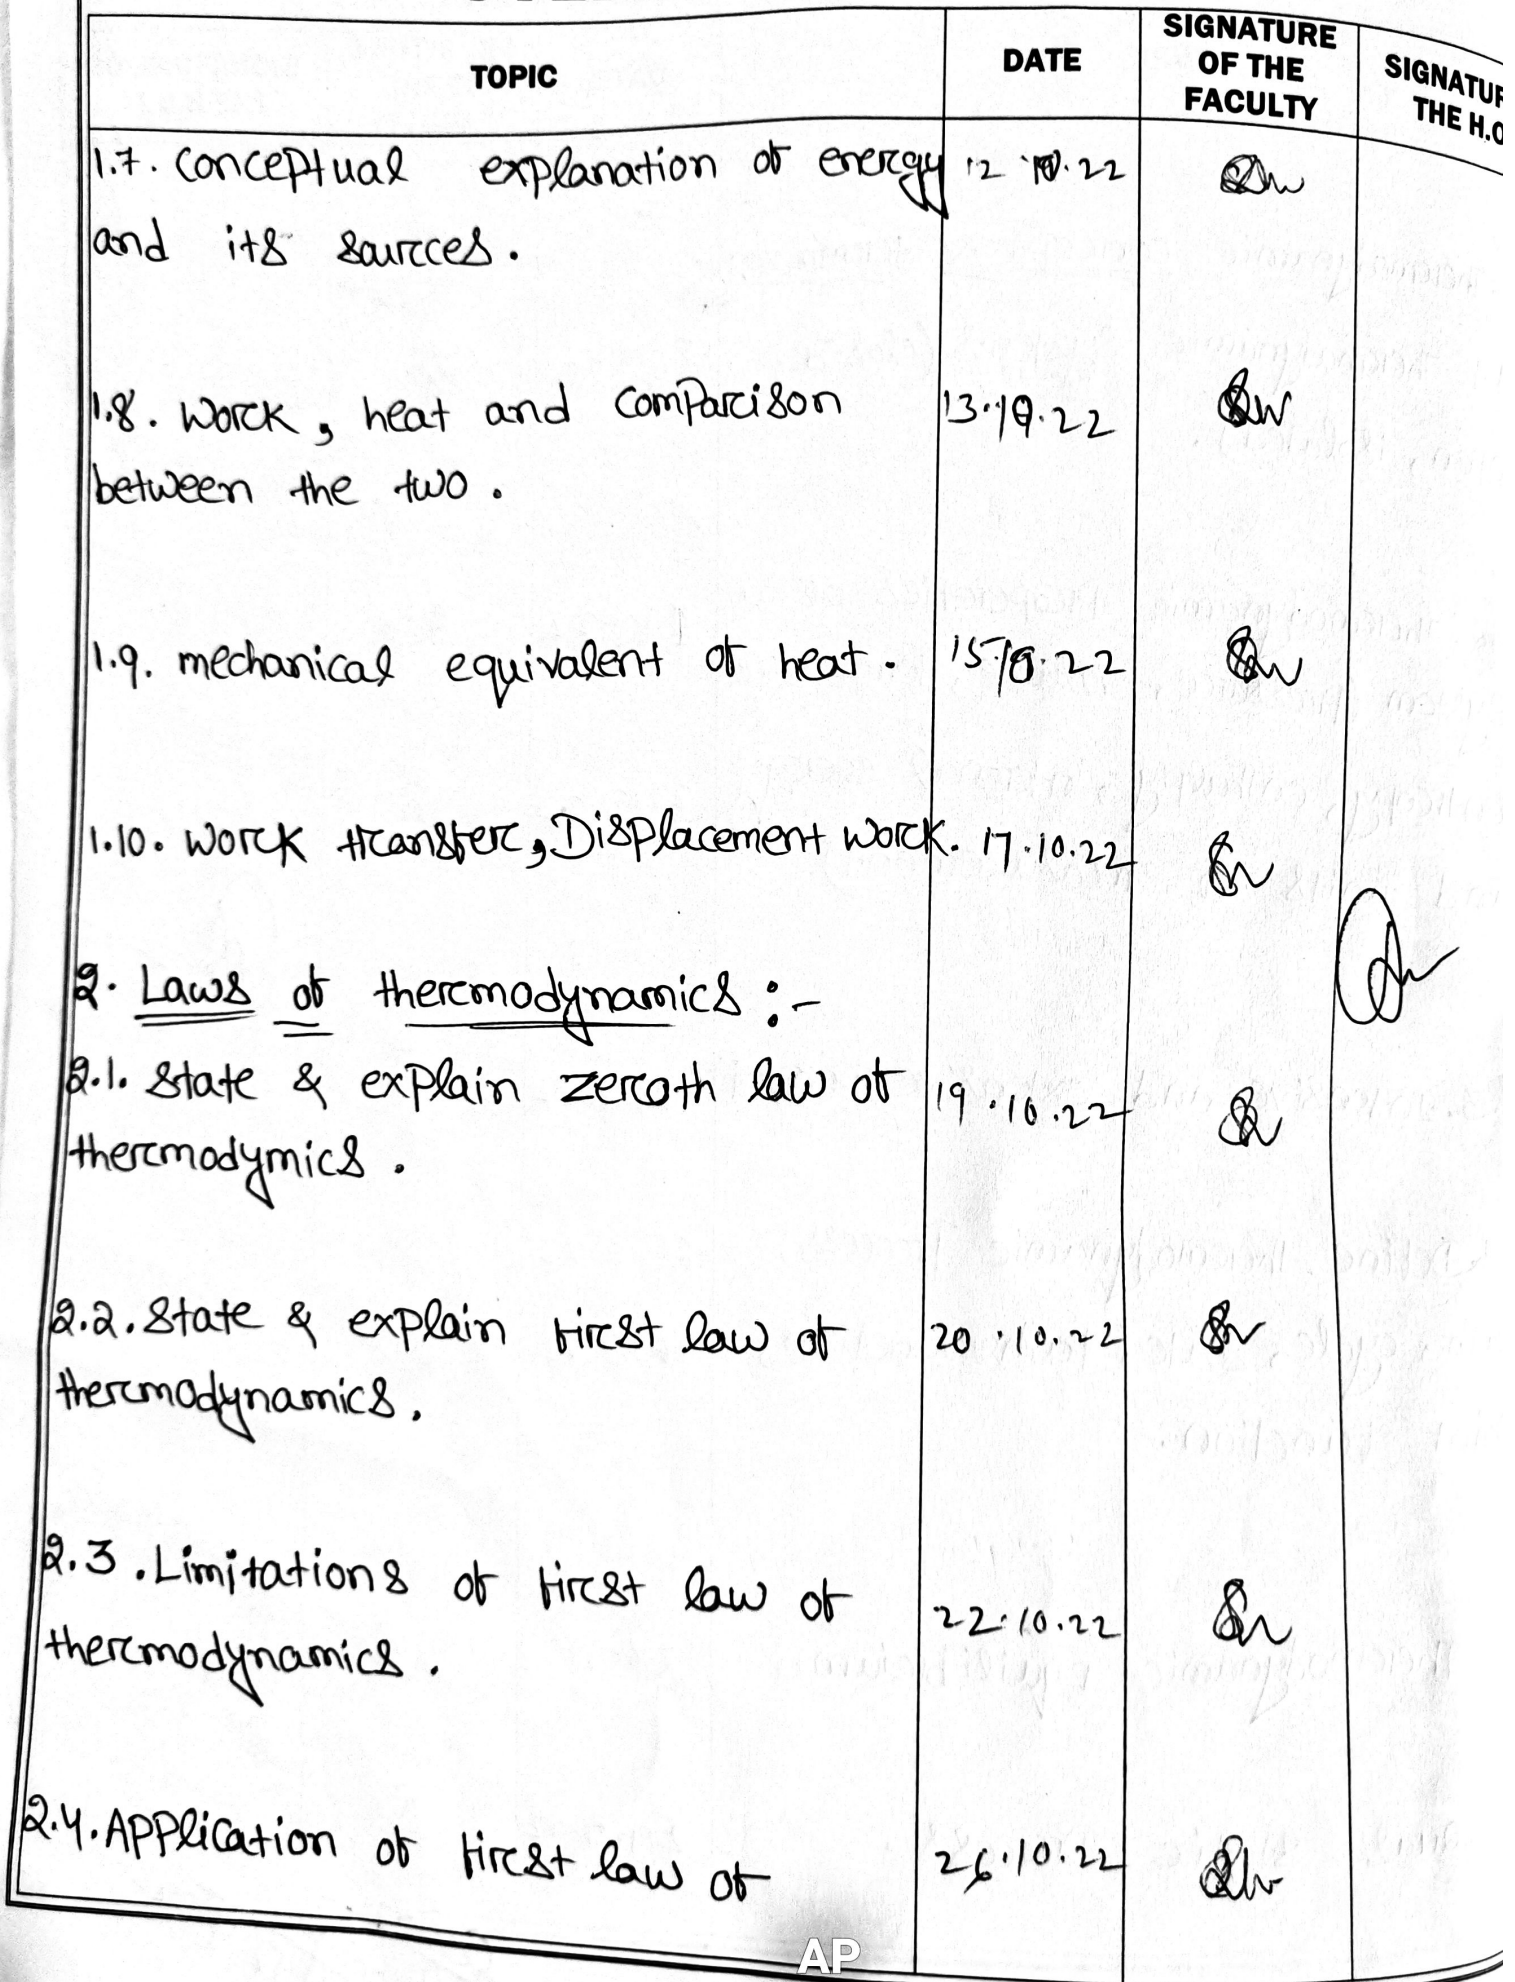 TOPIC DATE SIGNATURE OF THE FACULTY SIGNATUR THE H.O
1.7. conceptual explanation of energy 12.10.22
and its sources.
1.8. Work, heat and comparison 13.10.22
between the two.
1.9. mechanical equivalent of heat. 15.10.22
1.10. Work transfer, Displacement work. 17.10.22
2. Laws of thermodynamics :-
2.1. State & explain zeroth law of 19.10.22
thermodymics.
2.2. State & explain first law of 20.10.22
thermodynamics.
2.3. Limitations of first law of 22.10.22
thermodynamics.
2.4. Application of first law of 26.10.22
AP